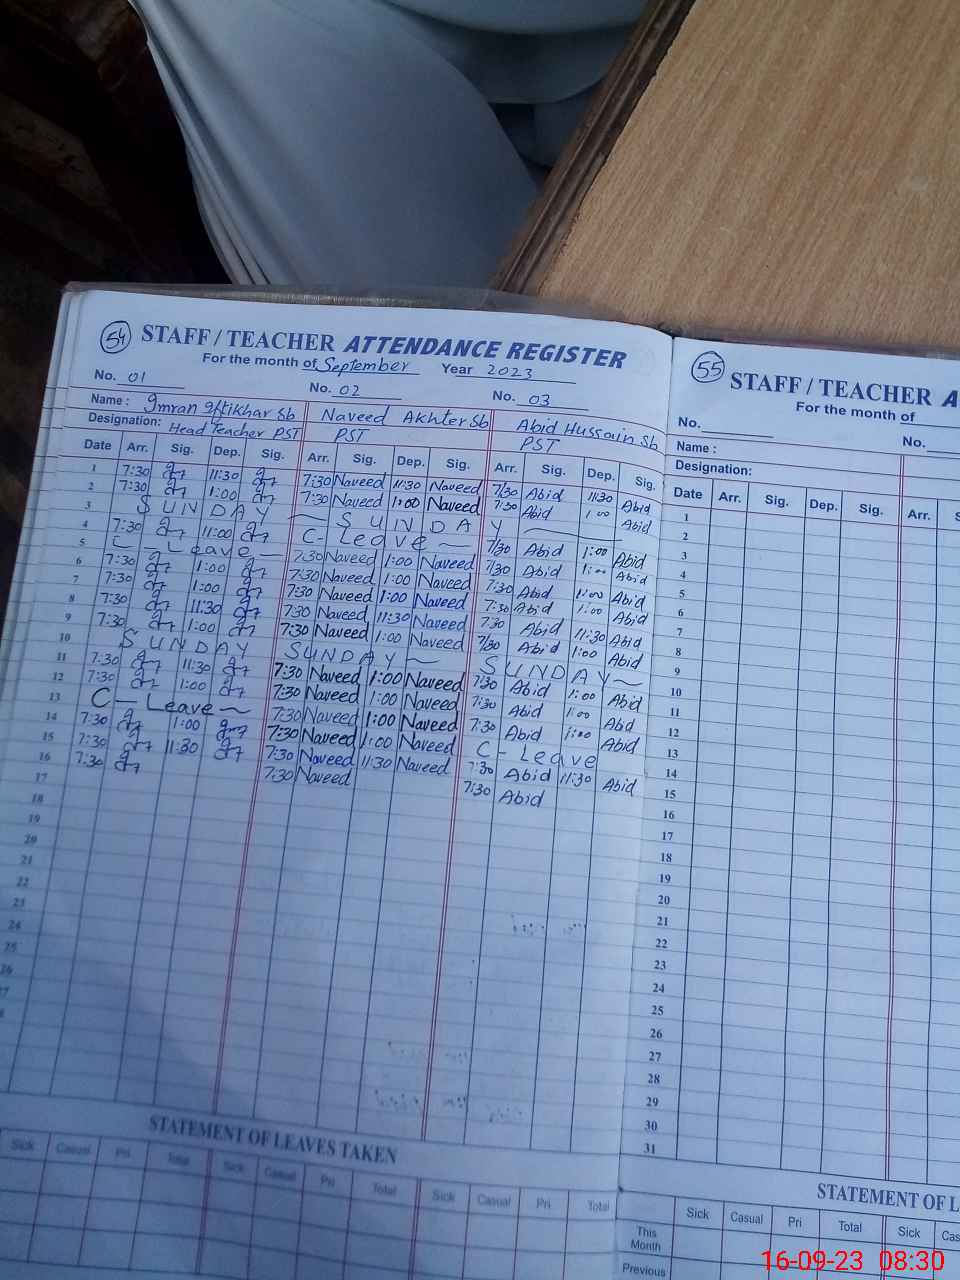 54 STAFF / TEACHER ATTENDANCE REGISTER
For the month of September Year 2023
No. 01 No. 02 No. 03
Name : Imran Iftikhar Sb Naveed Akhter Sb Abid Hussain Sb
Designation: Head Teacher PST PST PST
Date Arr. Sig. Dep. Sig. Arr. Sig. Dep. Sig. Arr. Sig. Dep. Sig.
1 7:30 11:30 7:30 Naveed 11:30 Naveed 7/30 Abid 11:30 Abid
2 7:30 1:00 7:30 Naveed 1:00 Naveed 7:30 Abid 1:00 Abid
3 SUNDAY SUNDAY
4 7:30 11:00 C- Leave 7/30 Abid 1:00 Abid
5 C- Leave 7:30 Naveed 1:00 Naveed 7/30 Abid 1:00 Abid
6 7:30 1:00 7:30 Naveed 1:00 Naveed 7:30 Abid 1:00 Abid
7 7:30 1:00 7:30 Naveed 1:00 Naveed 7:30 Abid 1:00 Abid
8 7:30 11:30 7:30 Naveed 11:30 Naveed 7:30 Abid 11:30 Abid
9 7:30 1:00 7:30 Naveed 1:00 Naveed 7/30 Abid 1:00 Abid
10 SUNDAY SUNDAY SUNDAY
11 7:30 11:30 7:30 Naveed 1:00 Naveed 7:30 Abid 1:00 Abid
12 7:30 1:00 7:30 Naveed 1:00 Naveed 7:30 Abid 1:00 Abid
13 C- Leave 7:30 Naveed 1:00 Naveed 7:30 Abid 1:00 Abid
14 7:30 1:00 7:30 Naveed 1:00 Naveed C- Leave
15 7:30 11:30 7:30 Naveed 11:30 Naveed 7:30 Abid 11:30 Abid
16 7:30 7:30 Naveed 7:30 Abid
17
18
19
20
21
22
23
24
25
STATEMENT OF LEAVES TAKEN
Sick Casual Pri Total Sick Casual Pri Total Sick Casual Pri Total
55 STAFF / TEACHER A
For the month of
No. No.
Name :
Designation:
Date Arr. Sig. Dep. Sig. Arr. S
1
2
3
4
5
6
7
8
9
10
11
12
13
14
15
16
17
18
19
20
21
22
23
24
25
26
27
28
29
30
31
STATEMENT OF L
Sick Casual Pri Total Sick Cas
This Month
Previous
16-09-23 08:30